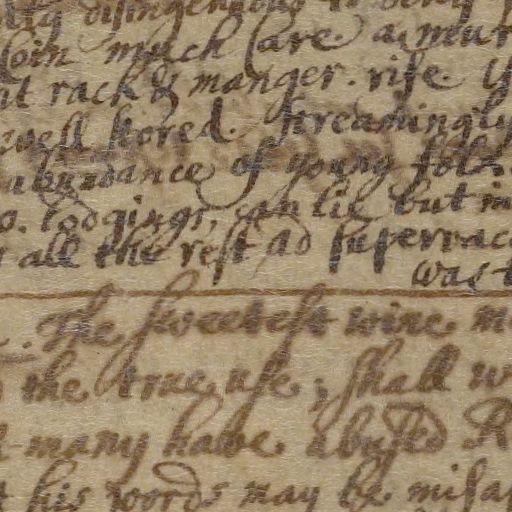 disingenuous to deny
Coin much Care. a mur
at rack & manger. rise. y
well stored. streamingly
abundance of young folk.
o. lodgings, can lie but in
all the rest ad supervac
was t
The sweetest wine m
the true use; shall w
many have abused R
his words may be misa